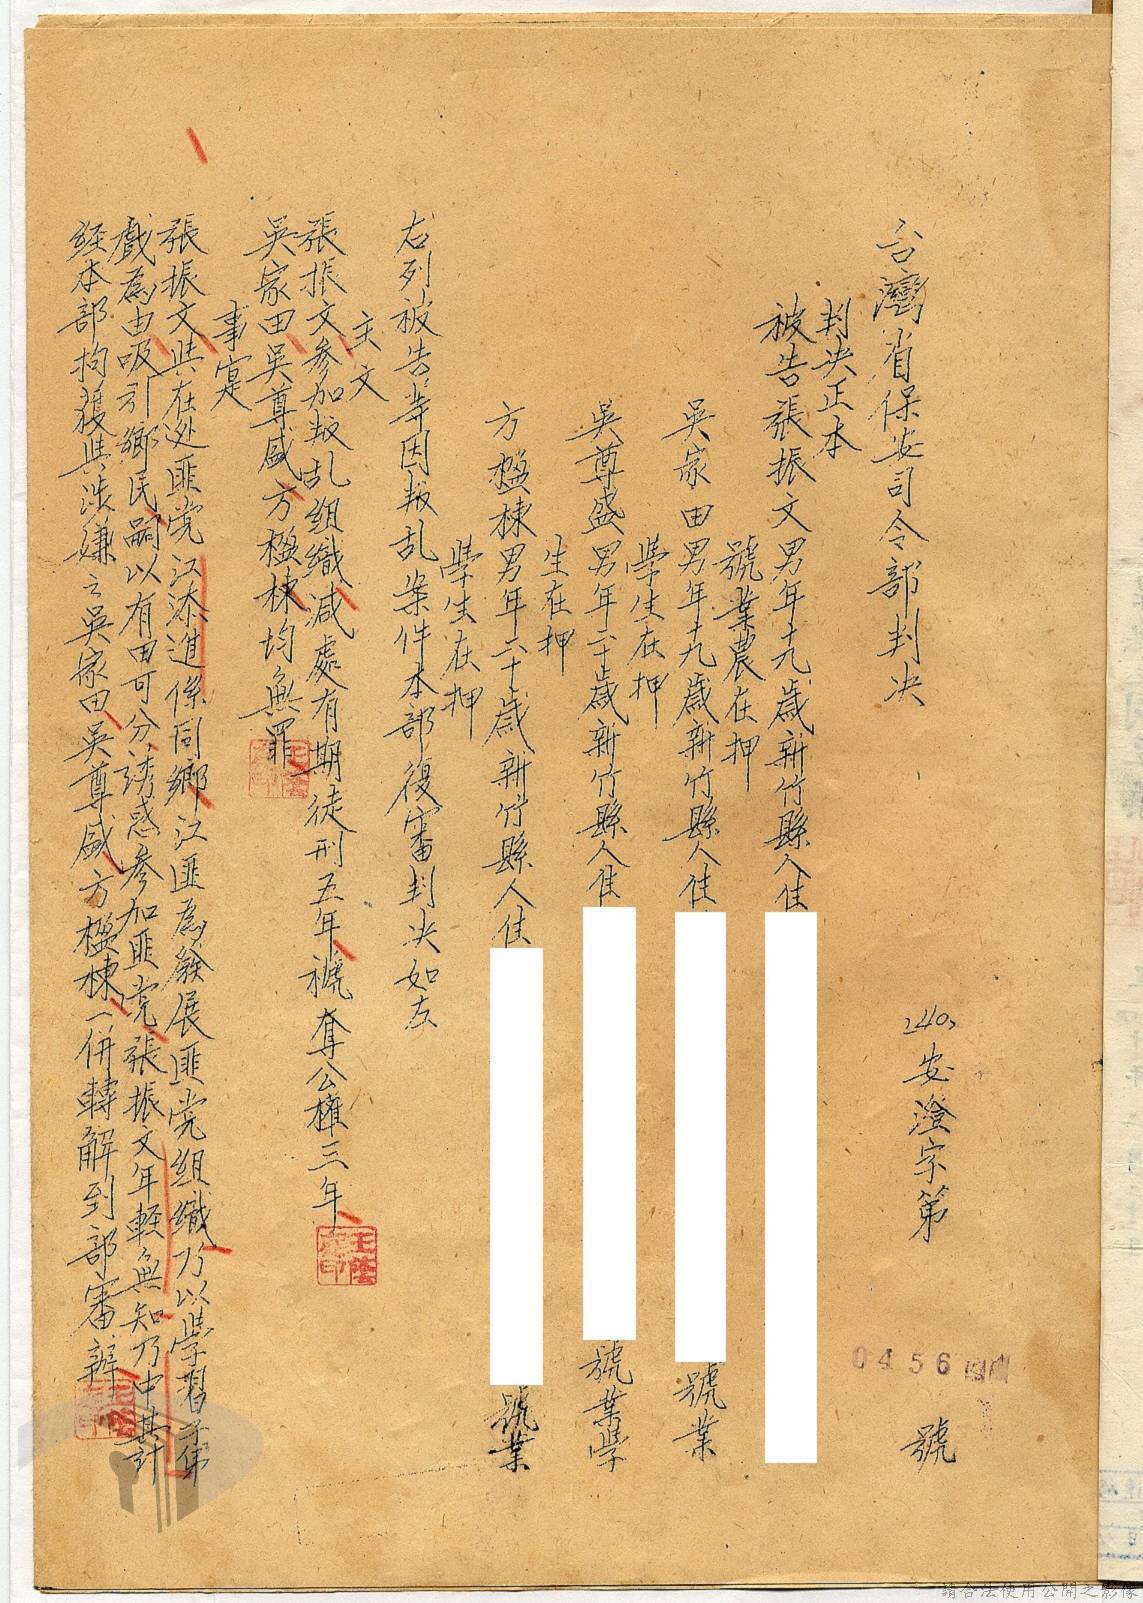 台灣省保安司令部判决
(40)安澄宗第 0456 號
判决正本
被告張振文男年十九歲新竹縣人住
號業農在押
吳家田男年十九歲新竹縣人住 號業
學生在押
吳尊盛男年二十歲新竹縣人住 號業學
生在押
方楹棟男年二十歲新竹縣人住 號業
學生在押
右列被告等因叛乱案件本部復審判决如左
主文
張振文參加叛乱組織減處有期徒刑五年褫奪公權三年
吳家田吳尊盛方楹棟均無罪
事寔
張振文與在逃匪党江添進係同鄉江匪為發展匪党組織乃以學習子弟
戲為由吸引鄉民嗣以有田可分誘惑參加匪党張振文年軽無知乃中其計
経本部拘獲與涉嫌之吳家田吳尊盛方楹棟一併轉解到部審辦
請合法使用公開之影像